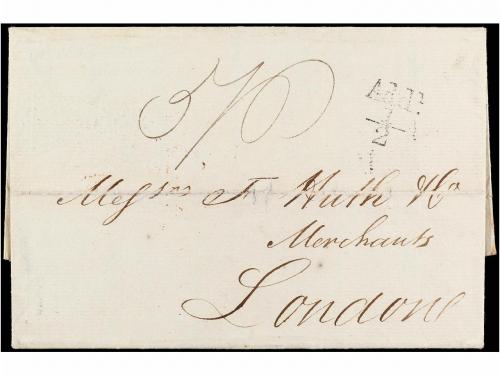 Messrs F. Huth &Co
Merchants
London